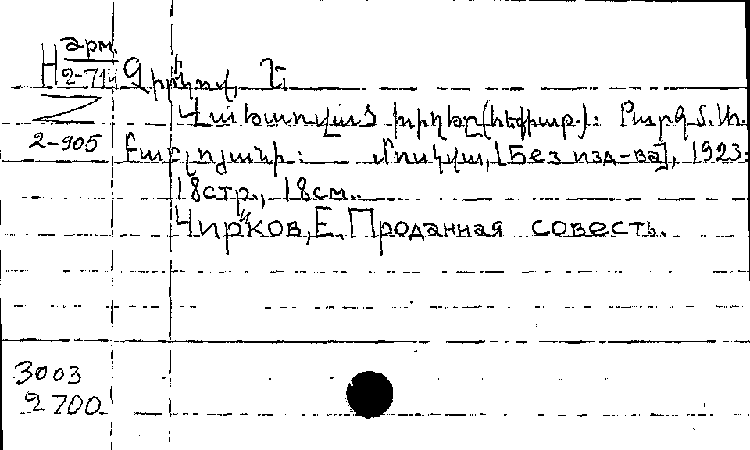 Н арм.
2-71ч Չիրկով, Ե.
Վաճառուած խիղճը (հեքիաթ)։ Թարգմ. Ա.
2-905 Բաբլոյանի։ Մոսկվա, [Без изд-ва], 1923.
18стр., 18см.
Чирков, Е. Проданная совесть.
3003
2700